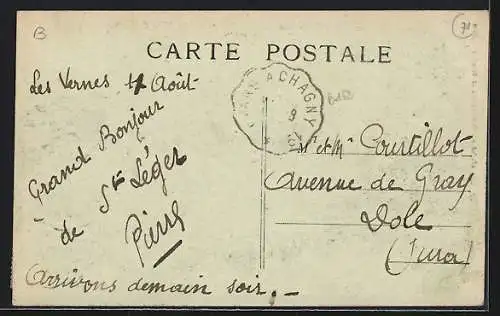 B
71
CARTE POSTALE
Les Vernes 4 Août
A CHAGNY
9
Grand Bonjour
de St Léger
Pierre
Arrivons demain soir. _
Mr et Me Courtillot
Avenue de Gray
Dole
(Jura)